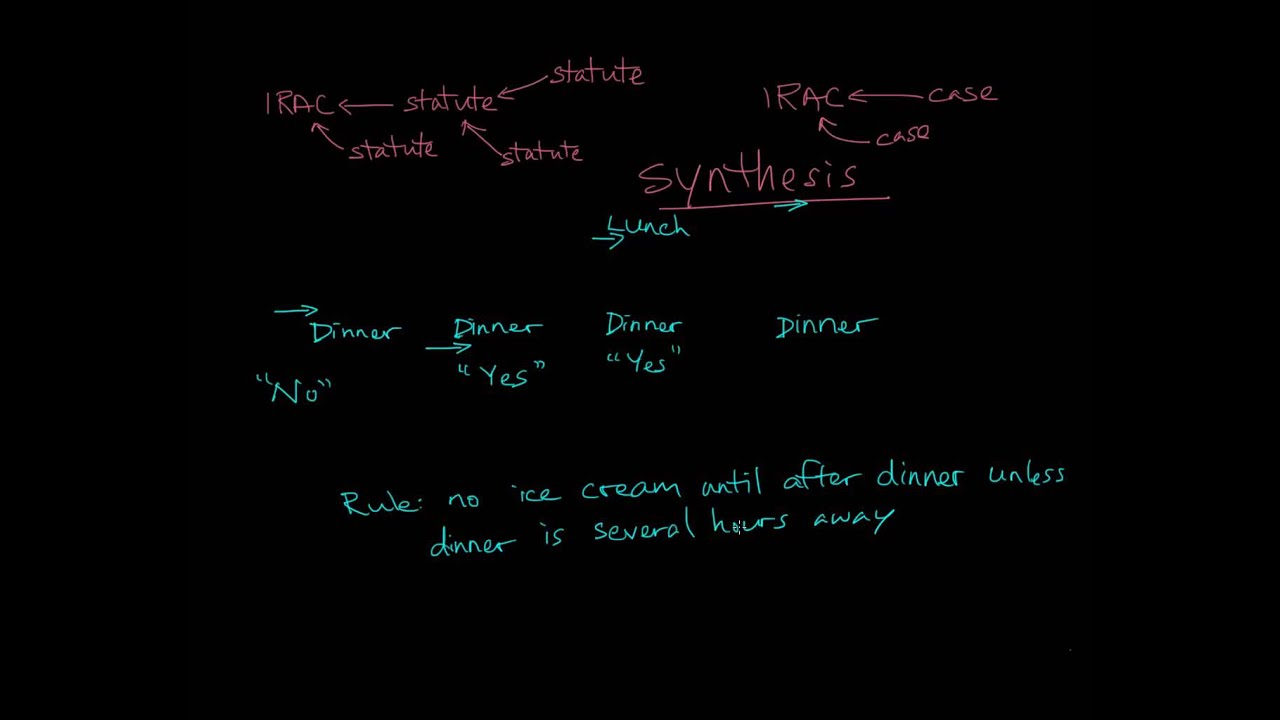 IRAC statute statute
statute statute
IRAC case
case
Synthesis
Lunch
Dinner Dinner Dinner Dinner
"No" "Yes" "Yes"
Rule: no ice cream until after dinner unless
dinner is several hours away